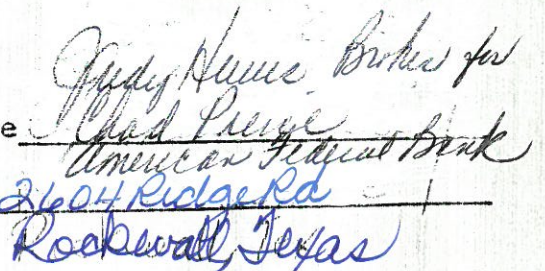 Judy Broker for
e Chad
American Federal Bank
2604 Ridge Rd
Rockwall, Texas